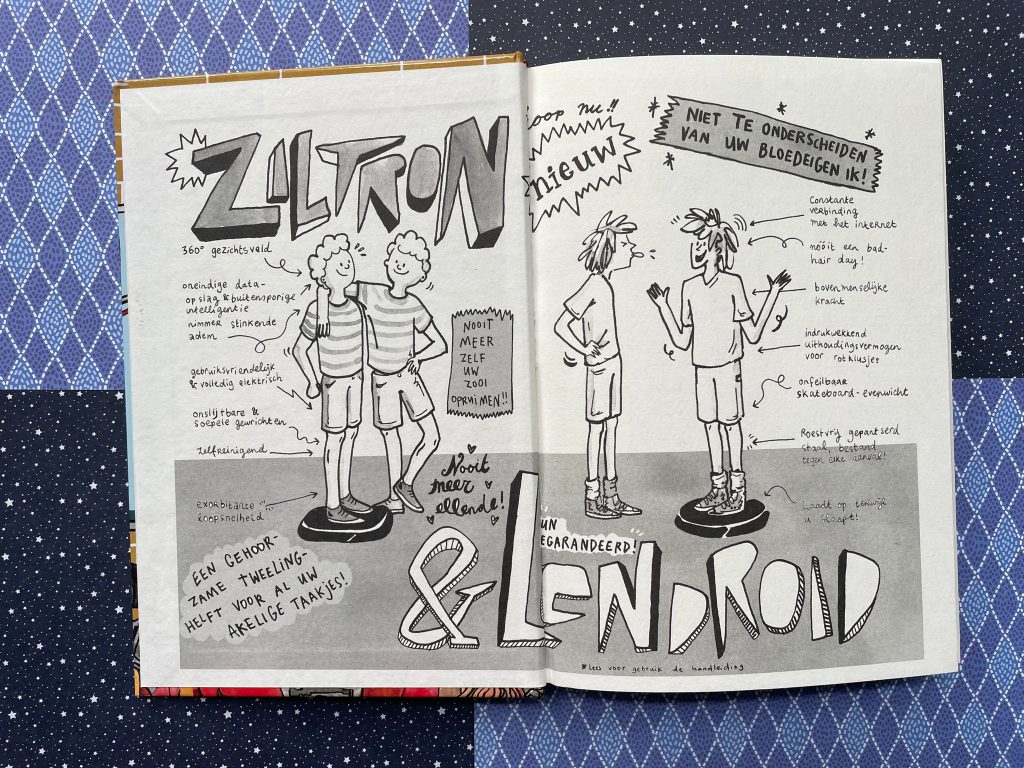 ZILTRON
360° gezichtsveld
oneindige data-
opslag & buitensporige
intelligentie
nimmer stinkende
adem
gebruiksvriendelijk
& volledig elektrisch
onslijtbare &
soepele gewrichten
zelfreinigend
exorbitante
loopsnelheid
EEN GEHOOR-
ZAME TWEELING-
HELFT VOOR AL UW
AKELIGE TAAKJES!
NOOIT
MEER
ZELF
UW
ZOOI
OPRUIMEN!!
Nooit
meer
ellende!
&
oop nu!!
nieuw
NIET TE ONDERSCHEIDEN
VAN UW BLOEDEIGEN IK!
Constante
verbinding
met het internet
nóóit een bad-
hair day!
bovenmenselijke
kracht
indrukwekkend
uithoudingsvermogen
voor rotklusjes
onfeilbaar
skateboard-evenwicht
Roestvrij gepantserd
staal, bestand
tegen elke aanval!
Laadt op terwijl
u slaapt!
UN
EGARANDEERD!
LENDROID
*Lees voor gebruik de handleiding